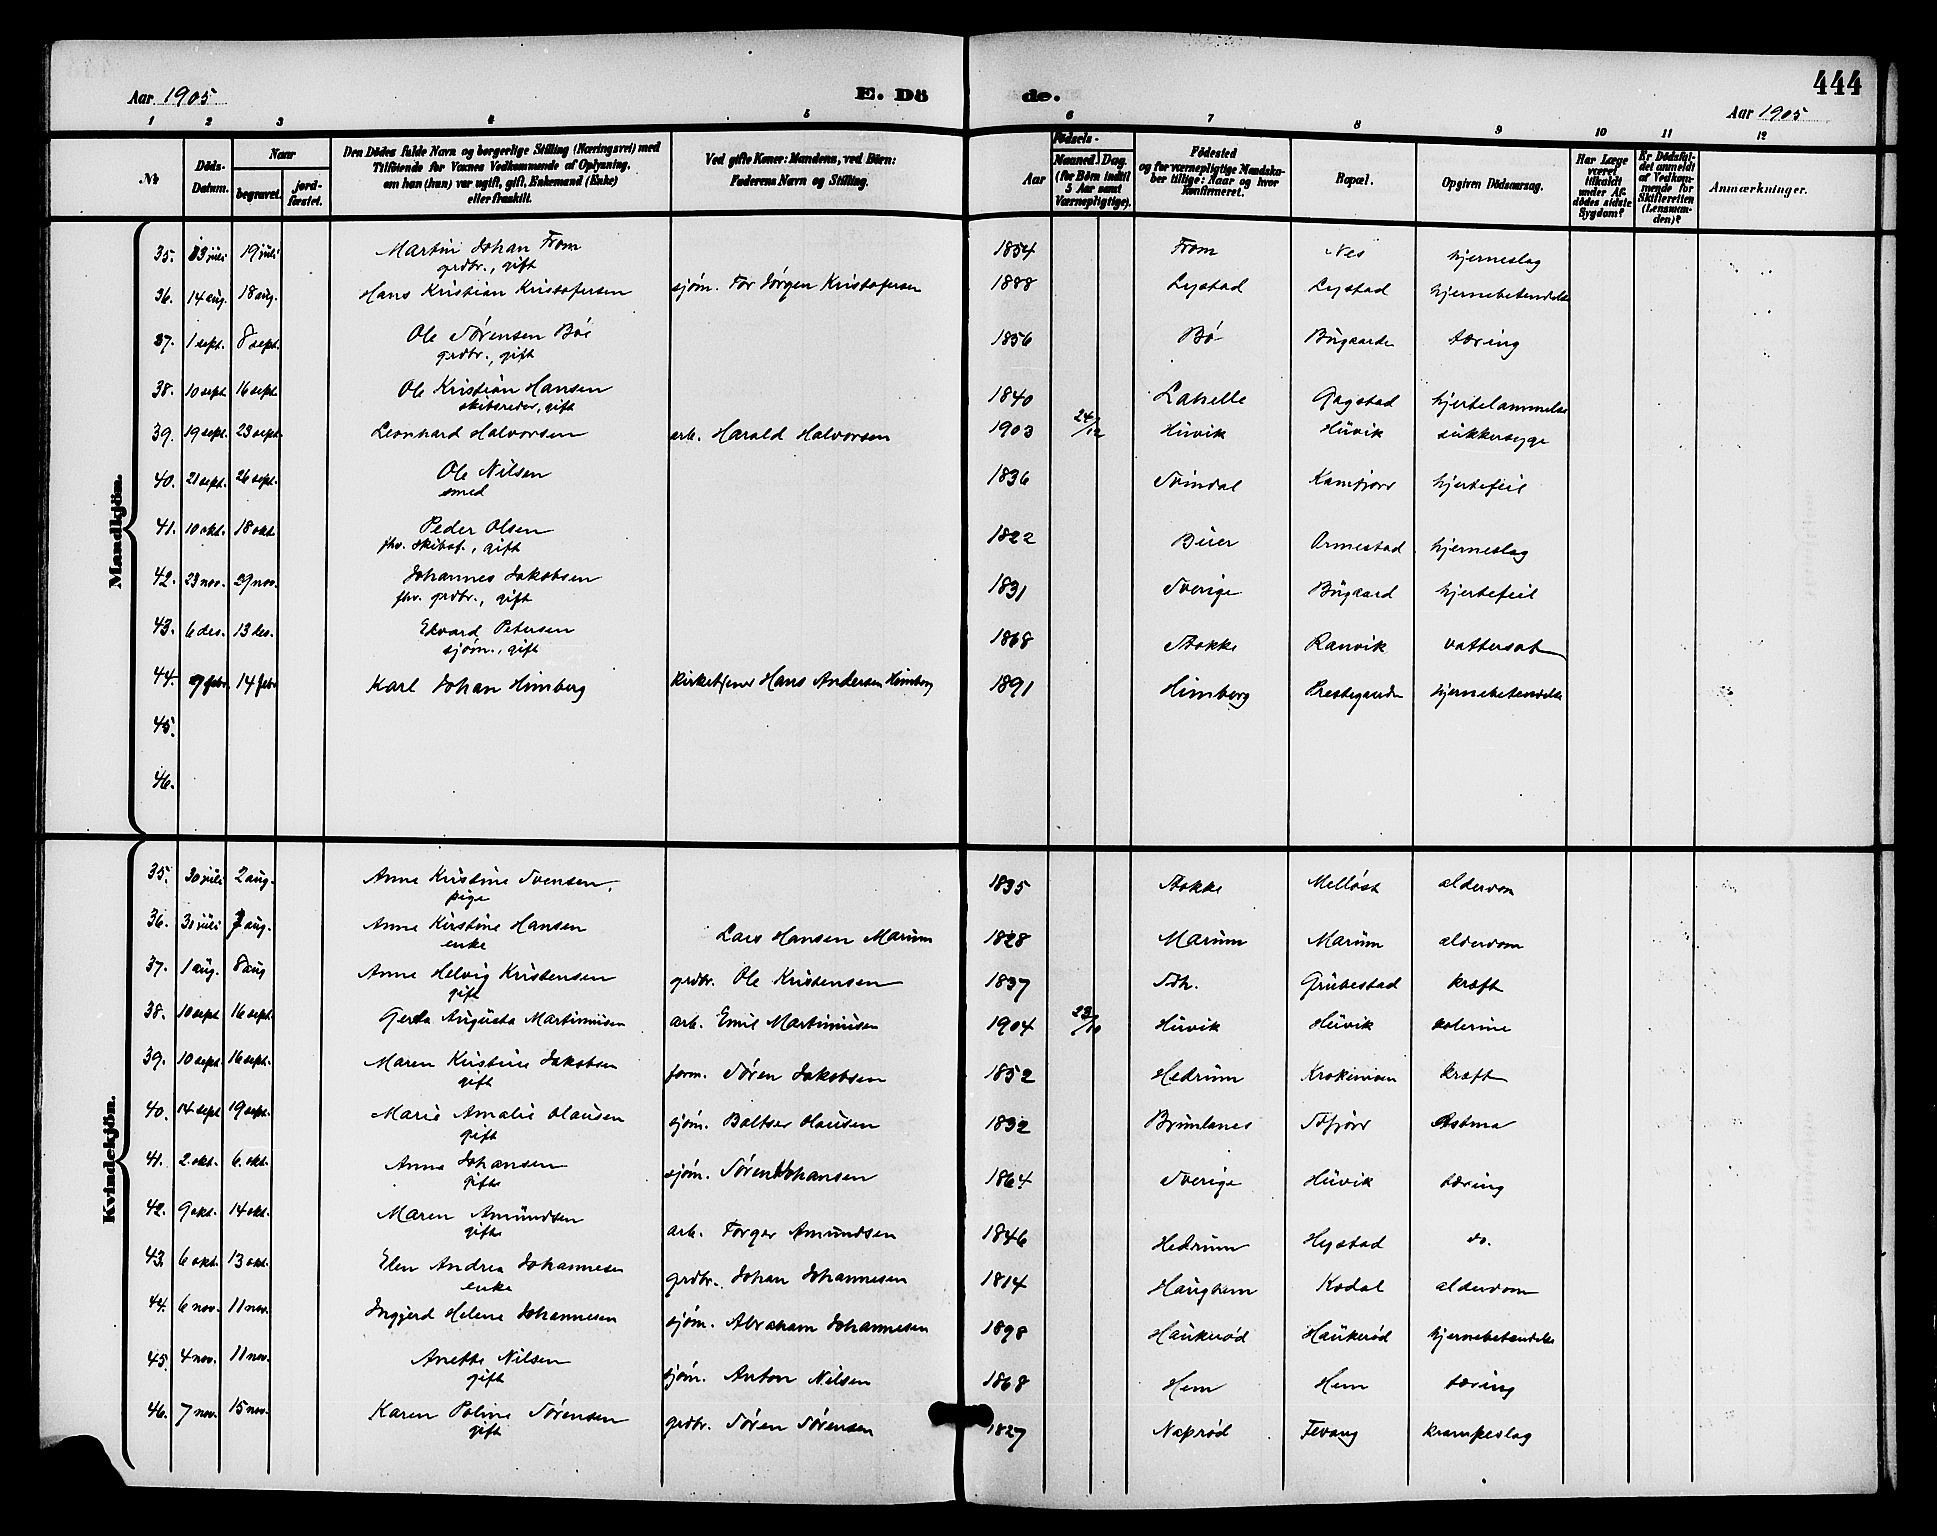 Aar 1905
E. Dö
de.
444
Aar 1905
1 2 3 4 5 6 7 8 9 10 11 12
No
Döds-Datum.
Naar
begravet.
jord-fæstet.
Den Dödes fulde Navn og borgerlige Stilling (Næringsvei) med
Tilföiende for Voxnes Vedkommende af Oplysning,
om han (hun) var ugift, gift, Enkemand (Enke)
eller fraskilt.
Ved gifte Koner: Mandens, ved Börn:
Faderens Navn og Stilling.
Födsels-
Aar
Maaned. Dag.
(for Börn indtil
5 Aar samt
Værnepligtige).
Födested
og for værnepligtige Mandska-
ber tillige: Naar og hvor
konfirmeret.
Bopæl.
Opgiven Dödsaarsag.
Har Læge
været
tilkaldt
under Af-
dödes sidste
Sygdom?
Er Dödsfal-
det anmeldt
af Vedkom-
mende for
Skifteretten
(Lensman-
den)?
Anmærkninger.
Mandkjön.
35. 13 juli 19 juli Martin Johan From 1854 From Nes hjerneslag
grdbr., gift
36. 14 aug. 18 aug. Hans Kristian Kristofersen sjøm. Tor Jørgen Kristofersen 1888 Lystad Lystad hjernebetendelse
37. 1 sept. 8 sept. Ole Sørensen Bøe 1856 Bø Bugaarden tæring
grdbr., gift
38. 10 sept. 16 sept. Ole Kristian Hansen 1840 Lahelle Gogstad hjertelammelse
skibsreder, gift
39. 19 sept. 23 sept. Leonhard Halvorsen arb. Harald Halvorsen 1903 24/12 Huvik Huvik sukkersyge
40. 21 sept. 26 sept. Ole Nilsen 1836 Svindal Kamfjorr hjertefeil
smed
41. 10 okt. 18 okt. Peder Olsen 1822 Ormestad hjerneslag
fhv. skibsf., gift
42. 23 nov. 29 nov. Johannes Jakobsen 1831 Sverige Bugaard hjertefeil
fhv. grdbr., gift
43. 6 des. 13 des. Edvard Petersen 1868 Stokke Ranvik vattersot
sjøm., gift
44. 7 febr. 14 febr Karl Johan Himberg kirketjener Hans Andersen Himberg 1891 Himberg Prestegaarden hjernebetendelse
45.
46.
Kvindekjön.
35. 30 juli 2 aug. Anne Kristine Svensen, 1835 Stokke Melløst alderdom
pige
36. 31 juli 7 aug. Anne Kirstine Hansen Lars Hansen Marum 1828 Marum Marum alderdom
enke
37. 1 aug. 8 aug Anne Helvig Kristensen grdbr. Ole Kristensen 1837 Sdh. Grubestad kræft
gift
38. 10 sept 16 sept. Gerda Augusta Martinusen arb. Emil Martinusen 1904 23/10 Huvik Huvik kolerine
39. 10 sept. 16 sept. Maren Kristine Jakobsen form. Søren Jakobsen 1852 Hedrum Krokemoen kræft
gift
40. 14 sept 19 sept. Marie Amalie Olausen sjøm. Baltser Olausen 1832 Brunlanes Sdfjorr Astma
gift
41. 2 okt. 6. okt. Anna Johansen sjøm. Søren Johansen 1864 Sverige Huvik tæring
gift
42. 9 okt. 14 okt. Maren Amundsen arb. Torger Amundsen 1846 Hedrum Hystad do.
gift
43. 6 okt. 13 okt. Elen Andrea Johannesen grdbr. Johan Johannesen 1814 Haughem Kodal alderdom
enke
44. 6 nov. 11 nov. Ingjerd Helene Johannesen sjøm. Abraham Johannesen 1898 Haukerød Haukerød hjernebetendelse
45. 4 nov. 11 nov. Anette Nilsen sjøm. Anton Nilsen 1868 Hem Hem tæring
gift
46. 7 nov. 15 nov. Karen Poline Sørensen grdbr. Søren Sørensen 1827 Naprød Fevang krampeslag
gift